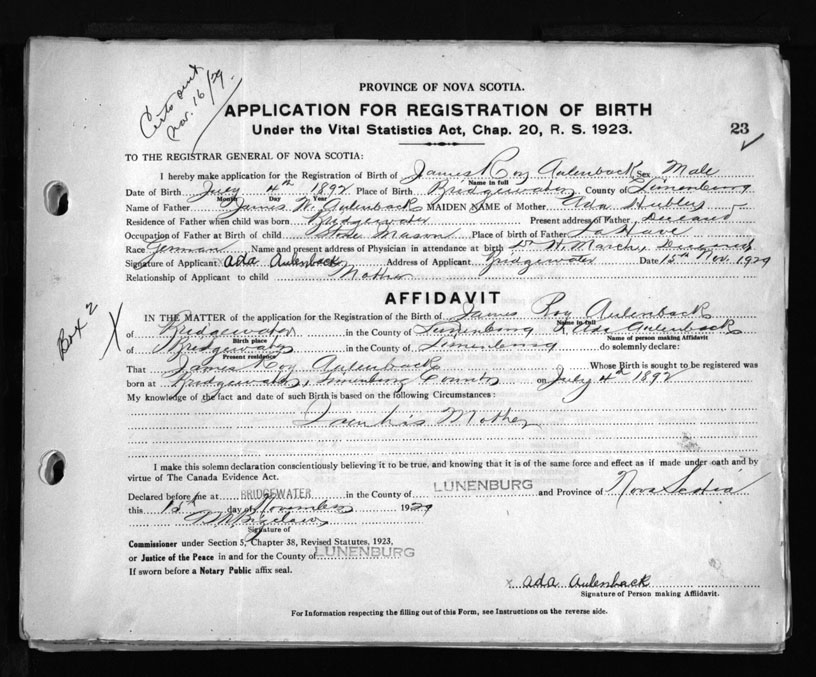 Certs sent
Nov. 16/29.
PROVINCE OF NOVA SCOTIA.
APPLICATION FOR REGISTRATION OF BIRTH
Under the Vital Statistics Act, Chap. 20, R. S. 1923.
23
TO THE REGISTRAR GENERAL OF NOVA SCOTIA:
I hereby make application for the Registration of Birth of James Roy Aulenback Sex Male
Name in full
Date of Birth July 4th 1892 Place of Birth Bridgewater County of Lunenburg
Month Day Year
Name of Father James W. Aulenback MAIDEN NAME of Mother Ada Hubley
Residence of Father when child was born Bridgewater Present address of Father Deceased
Occupation of Father at Birth of child Stone Mason Place of birth of Father LaHave
Race German Name and present address of Physician in attendance at birth Dr. H. March, Deceased
Signature of Applicant Ada Aulenback Address of Applicant Bridgewater Date 15th Nov. 1929
Relationship of Applicant to child Mother
AFFIDAVIT
Box 2
X
IN THE MATTER of the application for the Registration of the Birth of James Roy Aulenback
Name in full
of Bridgewater in the County of Lunenburg I, Ada Aulenback
Birth place Name of person making Affidavit
of Bridgewater in the County of Lunenburg do solemnly declare:
Present residence
That James Roy Aulenback Whose Birth is sought to be registered was
born at Bridgewater, Lunenburg County on July 4th 1892
My knowledge of the fact and date of such Birth is based on the following Circumstances:
I am his Mother
I make this solemn declaration conscientiously believing it to be true, and knowing that it is of the same force and effect as if made under oath and by
virtue of The Canada Evidence Act.
Declared before me at BRIDGEWATER in the County of LUNENBURG and Province of Nova Scotia
this 15th day of November 1929
Signature of
Commissioner under Section 5, Chapter 38, Revised Statutes, 1923,
or Justice of the Peace in and for the County of LUNENBURG
If sworn before a Notary Public affix seal.
x Ada Aulenback
Signature of Person making Affidavit.
For Information respecting the filling out of this Form, see Instructions on the reverse side.